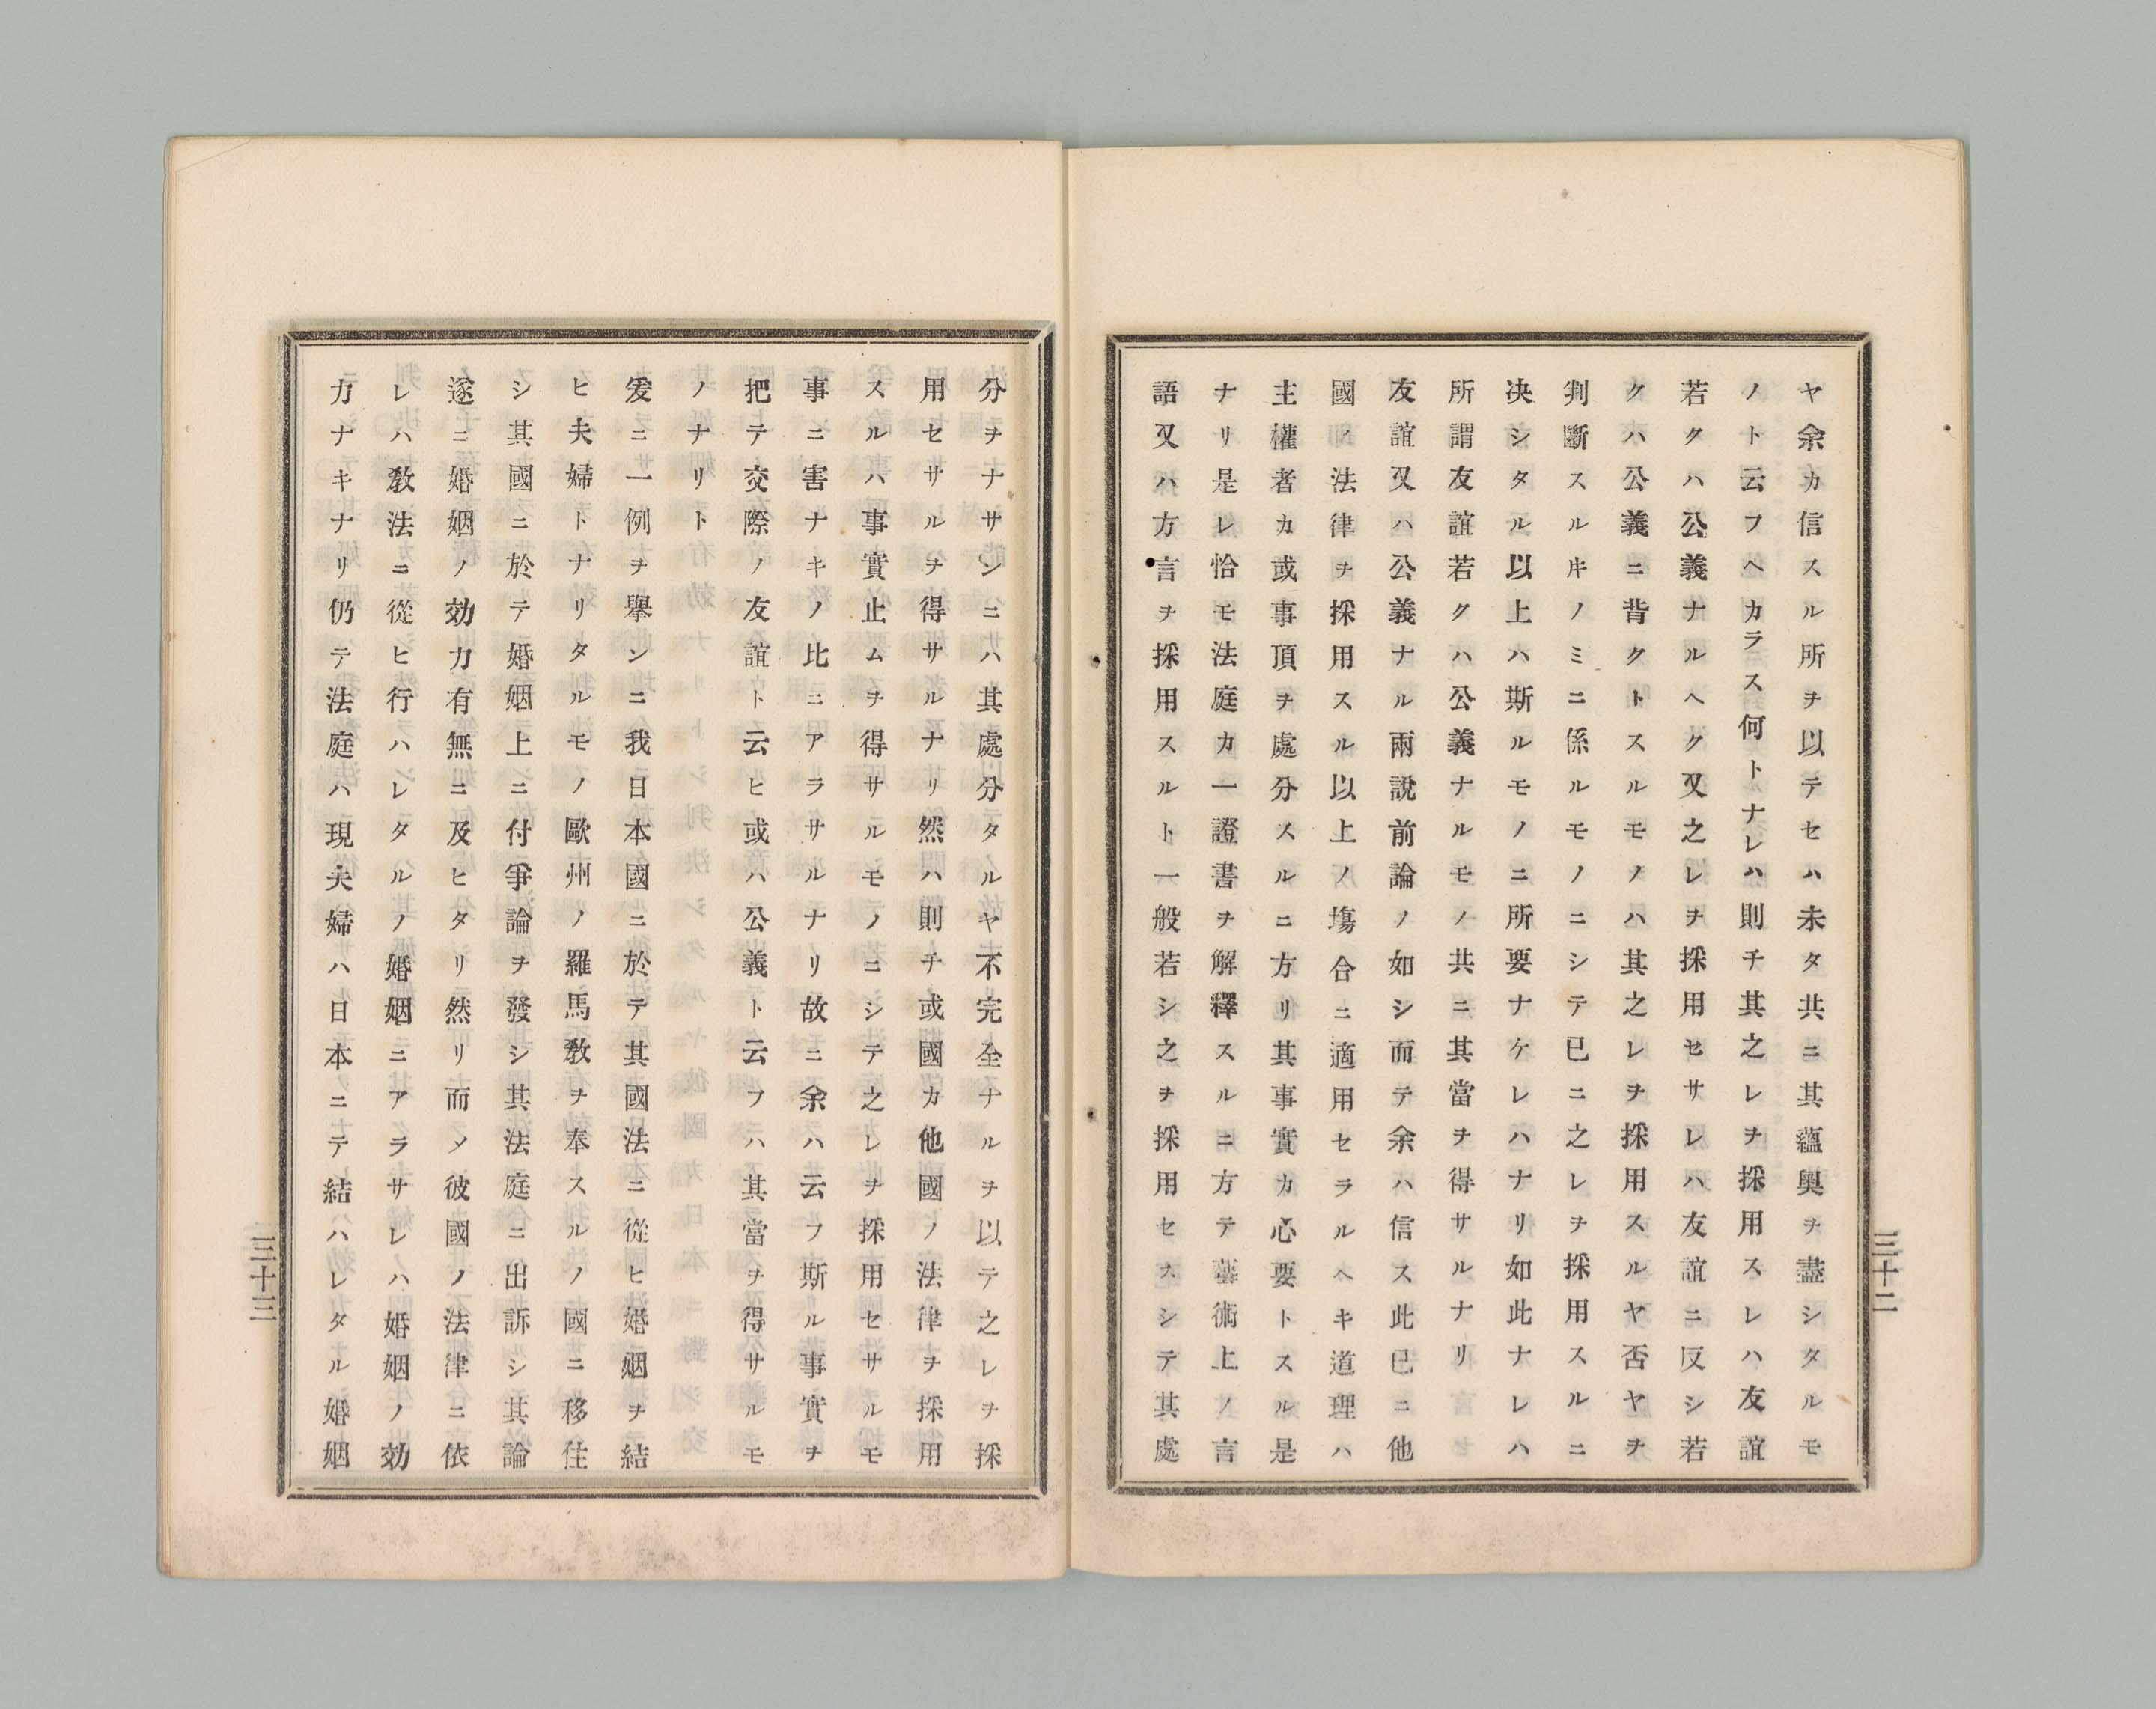 ヤ余カ信スル所ヲ以テセハ未タ共ニ其蘊奧ヲ盡シタルモ
ノト云フヘカラス何トナレハ則チ其之レヲ採用スレハ友誼
若クハ公義ナルヘク又之レヲ採用セサレハ友誼ニ反シ若
クハ公義ニ背クトスルモノハ其之レヲ採用スルヤ否ヤヲ
判斷スルキノミニ係ルモノニシテ已ニ之レヲ採用スルニ
决シタル以上ハ斯ルモノニ所要ナケレハナリ如此ナレハ
所謂友誼若クハ公義ナルモノ共ニ其當ヲ得サルナリ
友誼又ハ公義ナル兩說前論ノ如シ而テ余ハ信ス此已ニ他
國ノ法律ヲ採用スル以上ノ塲合ニ適用セラルヘキ道理ハ
主權者カ或事項ヲ處分スルニ方リ其事實カ心要トスル是
ナリ是レ恰モ法庭カ一證書ヲ解釋スルニ方テ藝術上ノ言
語又ハ方言ヲ採用スルト一般若シ之ヲ採用セスシテ其處
三十二
分ヲナサンニハ其處分タルヤ不完全ナルヲ以テ之レヲ採
用セサルヲ得サルナリ然ハ則チ或國カ他國ノ法律ヲ採用
スルハ事實止ムヲ得サルモノニシテ之レヲ採用セサルモ
事ニ害ナキノ比ニアラサルナリ故ニ余ハ云フ斯ル事實ヲ
把テ交際ノ友誼ト云ヒ或ハ公義ト云フハ其當ヲ得サルモ
ノナリト
爰ニ一例ヲ擧ンニ我日本國ニ於テ其國法ニ從ヒ婚姻ヲ結
ヒ夫婦トナリタルモノ歐州ノ羅馬敎ヲ奉スルノ國ニ移住
シ其國ニ於テ婚姻上ニ付爭論ヲ發シ其法庭ニ出訴シ其論
遂ニ婚姻ノ効力有無ニ及ヒタリ然リ而メ彼國ノ法律ニ依
レハ敎法ニ從ヒ行ハレタルノ婚姻ニアラサレハ婚姻ノ効
力ナキナリ仍テ法庭ハ現夫婦ハ日本ニテ結ハレタル婚姻
三十三